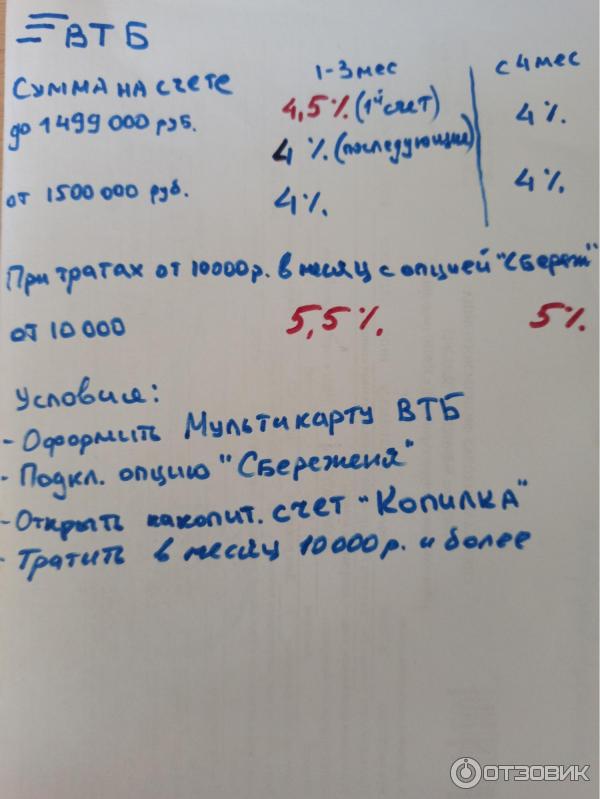 ВТБ
Сумма на счете 1-3 мес с 4 мес
до 1499 000 руб. 4,5% (1й счет) 4%.
4 % (последующие)
от 1500 000 руб. 4% 4%.
При тратах от 10000р. в месяц с опцией "Сбереж"
от 10 000 5,5% 5%
Условия:
- Оформить Мультикарту ВТБ
- Подкл. опцию "Сбереженя"
- Открыть накопит. счет "Копилка"
- Тратить в месяц 10000р. и более
ОТЗОВИК